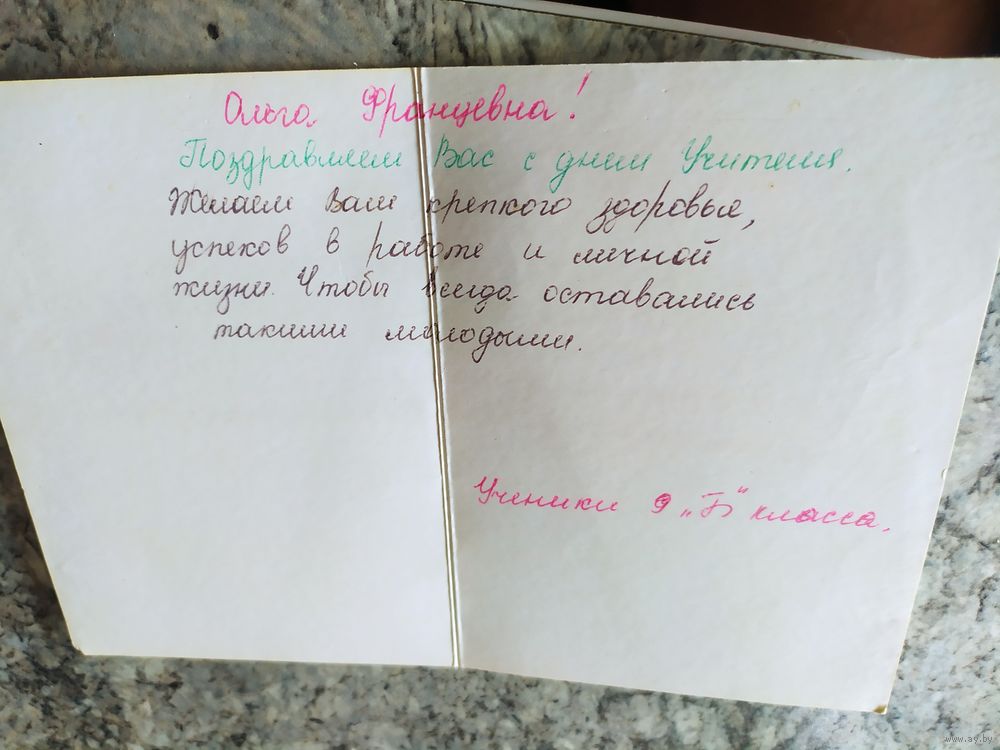 Ольга Францевна!
Поздравляем Вас с днем Учителя.
Желаем Вам крепкого здоровья,
успехов в работе и личной
жизни. Чтобы всегда оставались
такими молодыми.
Ученики 9 „Б" класса.
www.ay.by